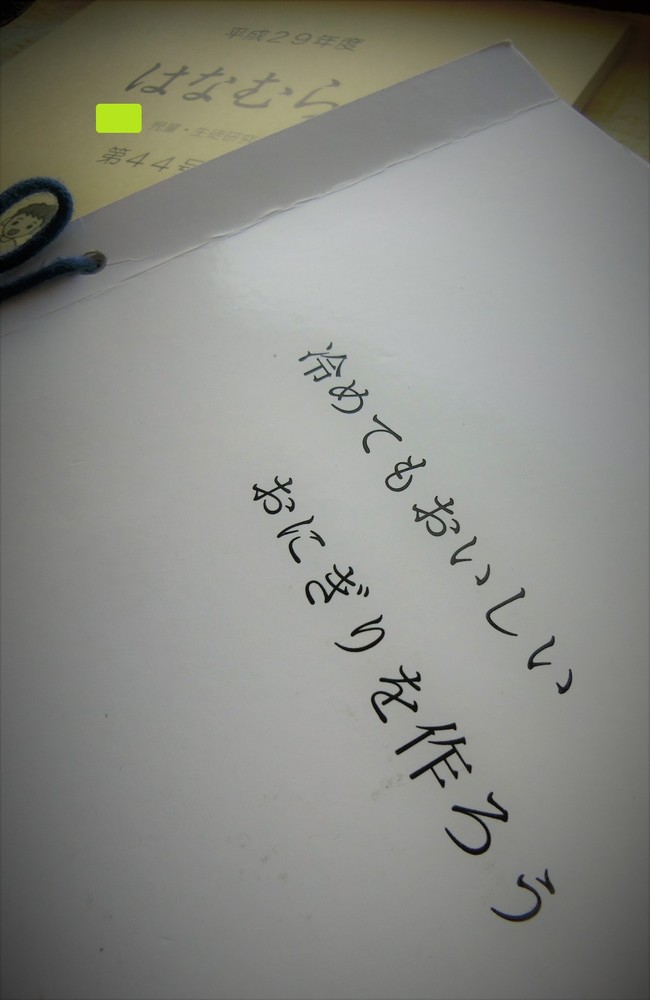 平成29年度
はなむら
児童・生徒研究
第44号
冷めてもおいしい
おにぎりを作ろう